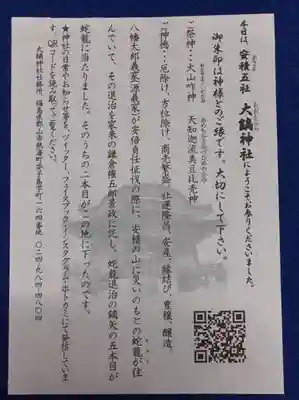 本日は、安積五社 大鏑神社にようこそお参りくださいました。
御朱印は神様とのご縁です。大切にして下さい。
ご祭神…大山咋神 天知迦流美豆比売神
ご神徳…厄除け、方位除け、商売繁盛、社運隆昌、安産、縁結び、豊穣、醸造、
八幡太郎義家(源義家)が安倍貞任征伐の際に、安積の山に災いのもとの蛇龍が住
んでいて、その退治を家来の鎌倉権五郎景政に託し、蛇龍退治の鏑矢の五本目が
蛇龍に当たりました。そのうちの二本目がこの地に下ったのです。
★神社の日常やお知らせ等を、ツイッター、フェイスブック・インスタグラム・ホトカミにて発信していま
す。QRコードを読み取ってご覧ください。
大鏑神社社務所 福島県郡山市熱海町